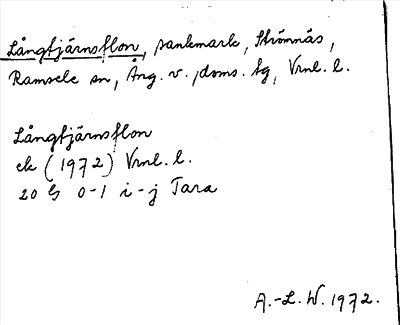 Långtjärnsflon, sankmark, Strömnäs,
Ramsele sn, Ång. v., doms. tg, Vrnl. l.
Långtjärnsflon
ek (1972) Vrnl. l.
20 G 0-1 i-j Tara
A.-L. W. 1972.